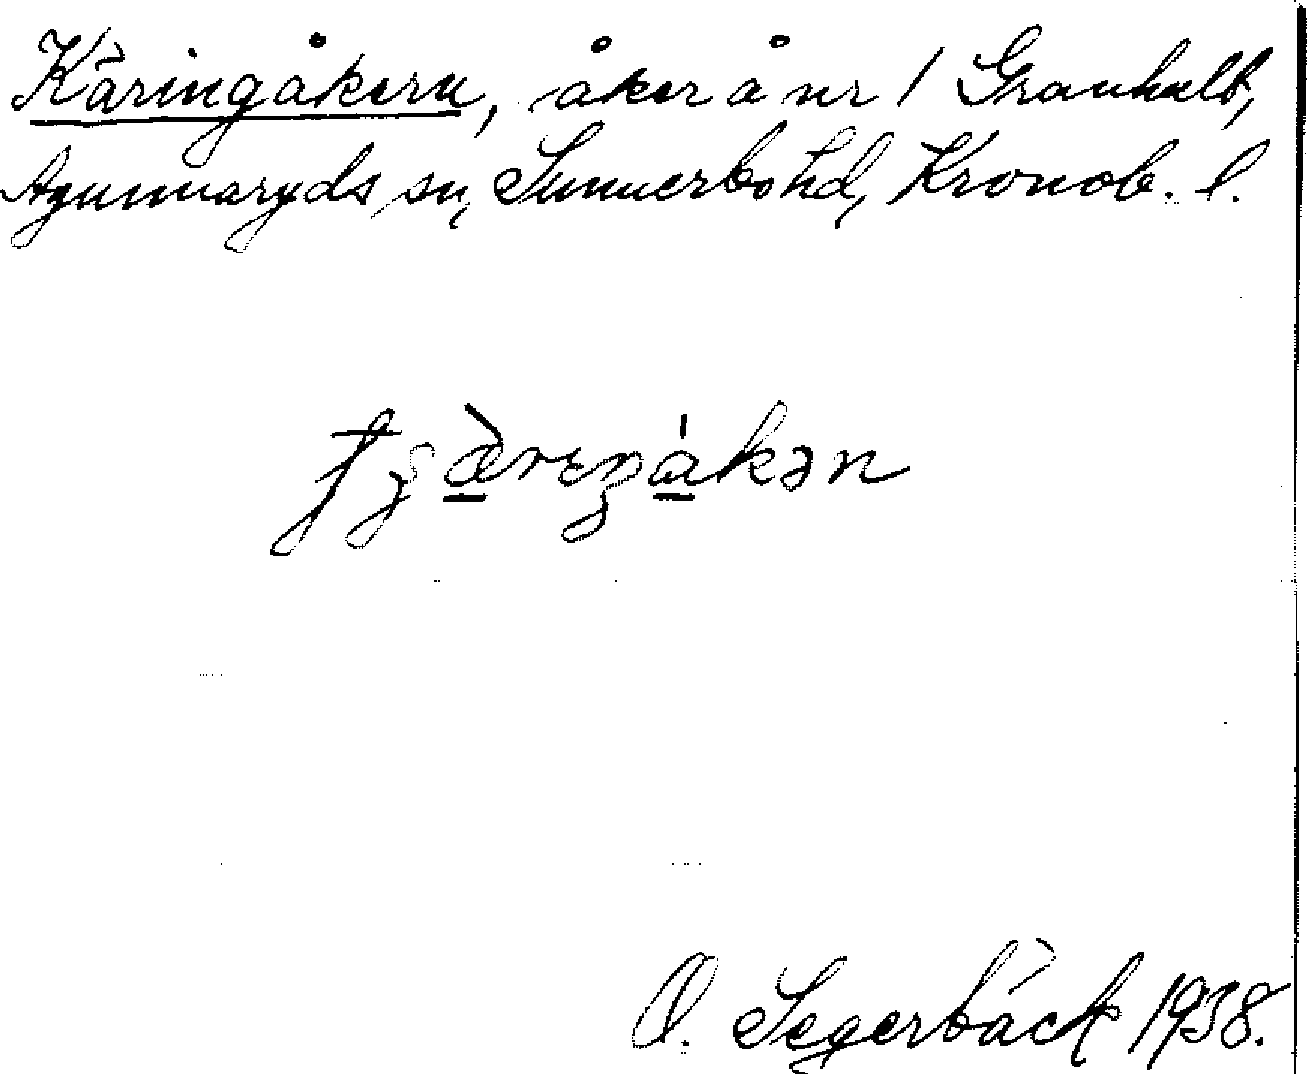 Käringåkern, åker å nr 1 Granhult,
Agunnaryds sn, Sunnerbo hd, Kronob. l.
O. Segerbäck 1938.